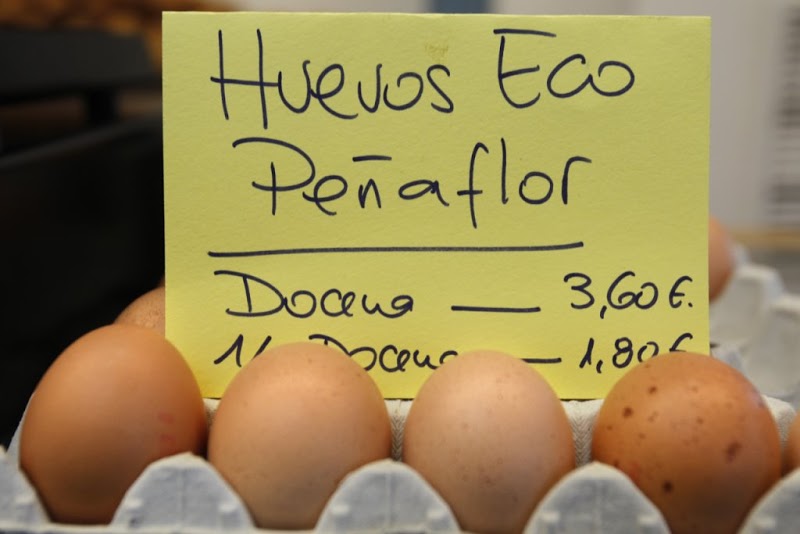 Huevos Eco
Peñaflor
Docena — 3,60 €.
1/ Docena — 1,80 €